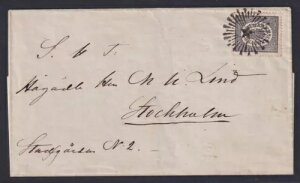 S. T.
Högädle Herr M U. Lind
Stockholm
Stadsgården N 2.